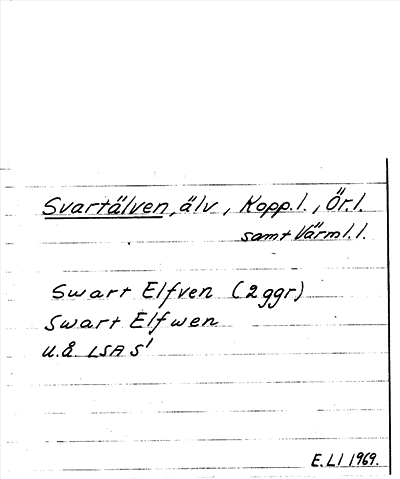 Svartälven, älv, Kopp.l., Ör.l.
samt Värml.l.
Swart Elfven (2 ggr)
Swart Elfwen
u.å. LSA S1
E.LI 1969.